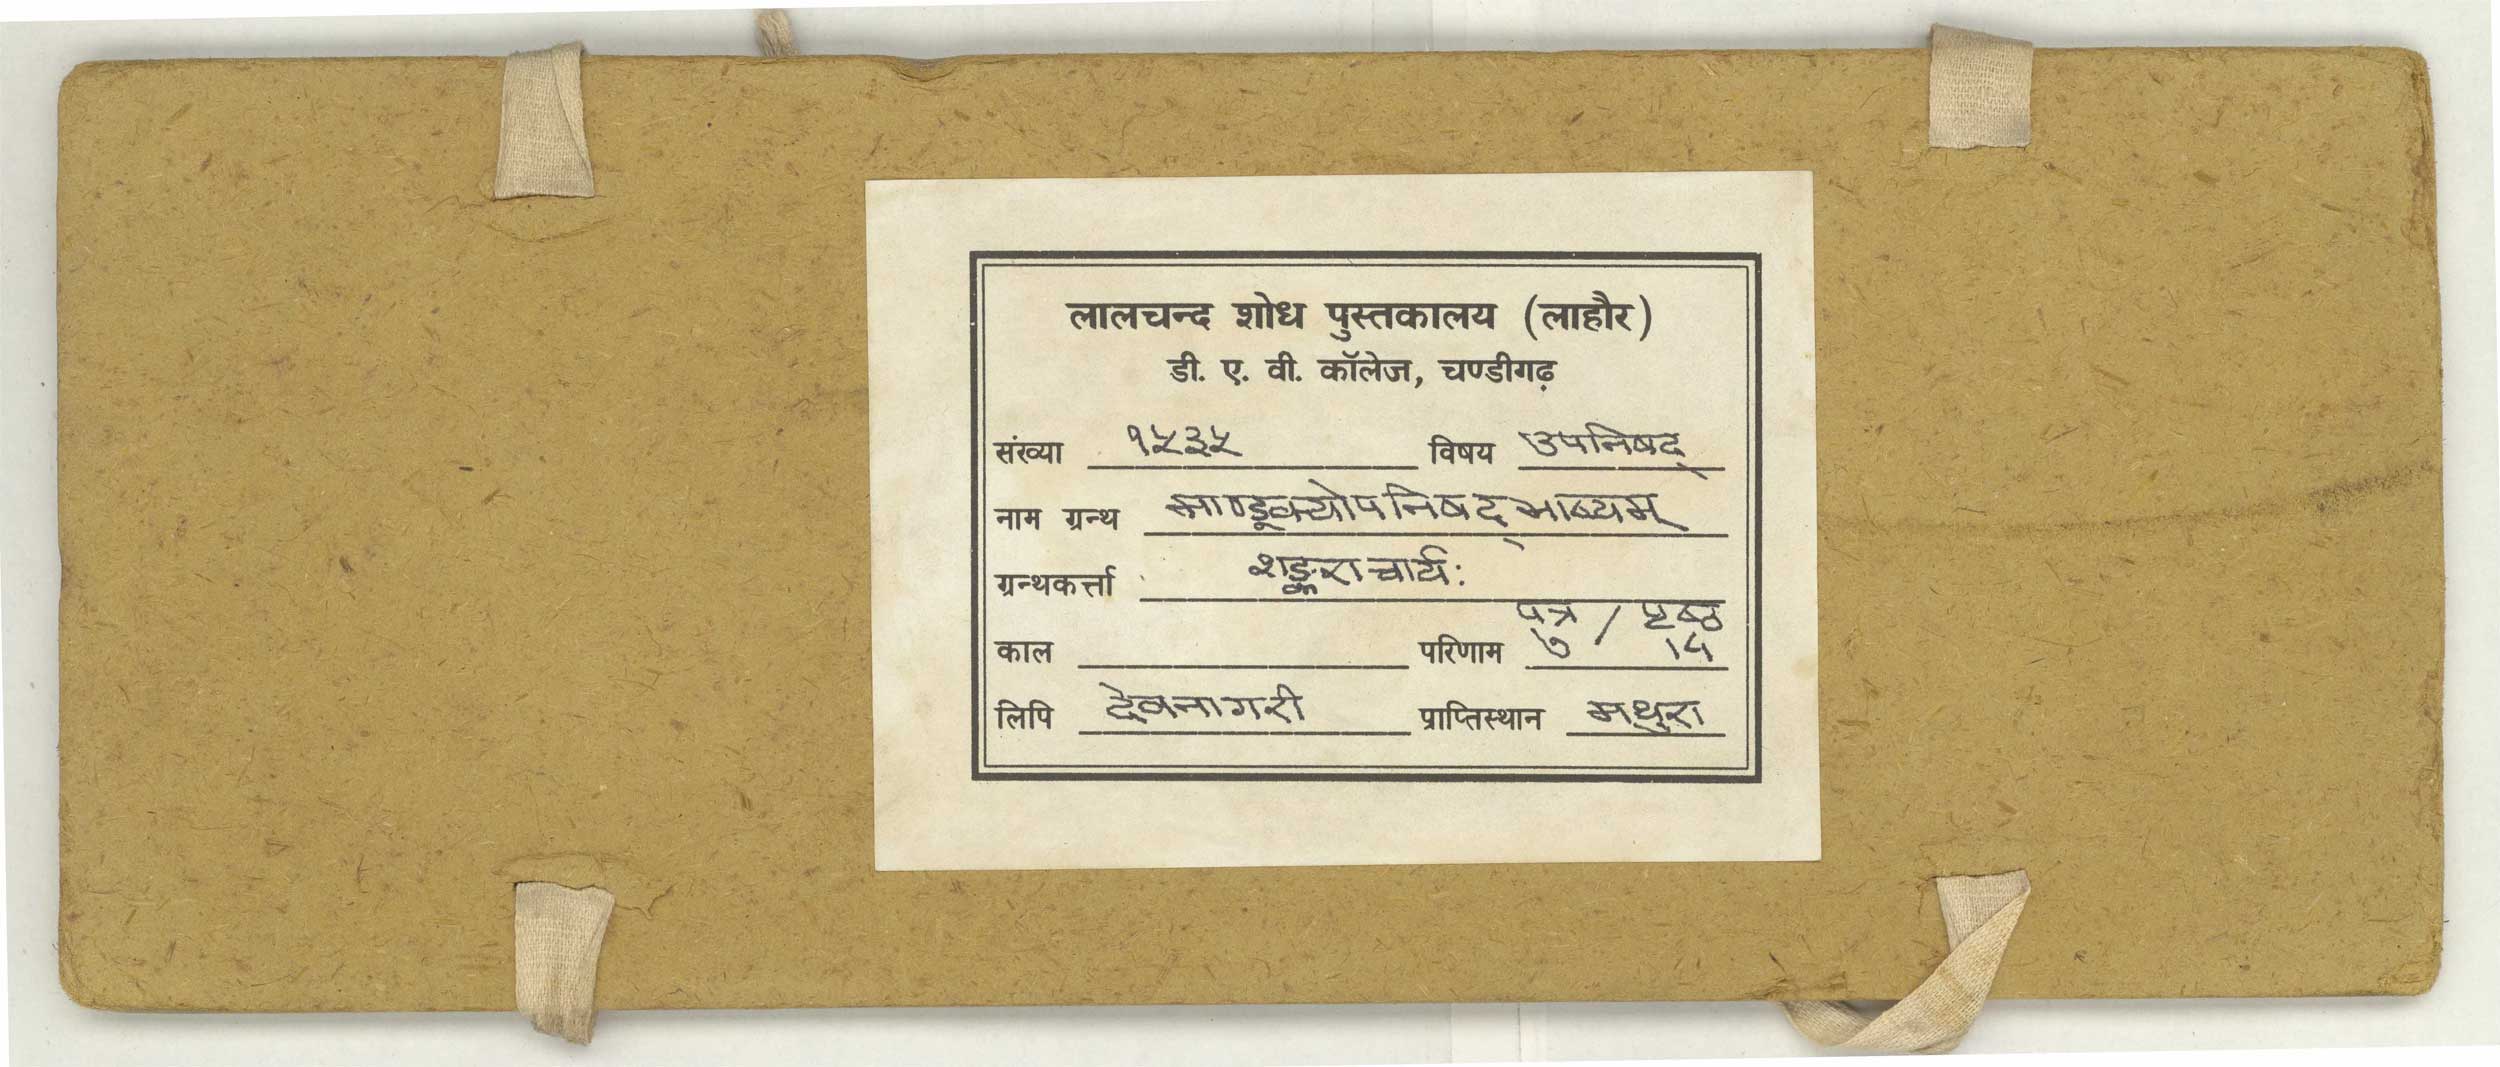 लालचन्द शोध पुस्तकालय (लाहौर)
डी. ए. वी. कॉलेज, चण्डीगढ़
संख्या १५३५ विषय उपनिषद्
नाम ग्रन्थ माण्डूक्योपनिषद् भाष्यम्
ग्रन्थकर्त्ता शङ्कराचार्य:
पत्र / पृष्ठ
काल परिणाम ७ / १५
लिपि देवनागरी प्राप्तिस्थान मथुरा